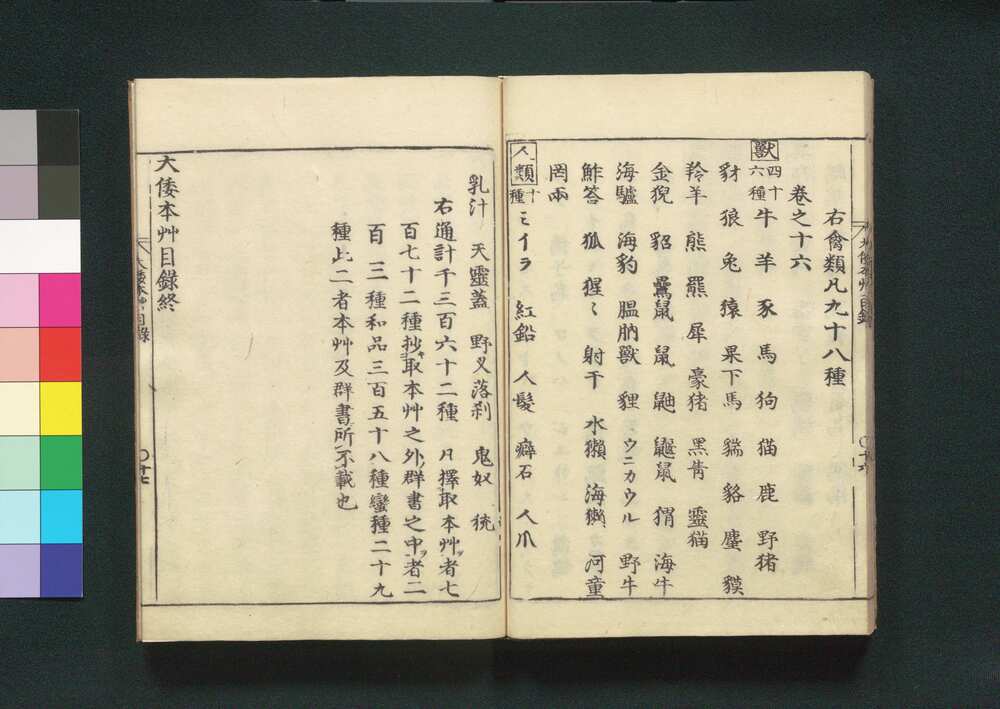 右禽類凡九十八種
卷之十六
獸 四十六種 牛 羊 豕 馬 狗 猫 鹿 野猪
豺 狼 兎 猿 果下馬 猯 貉 麈 獏
羚羊 熊 羆 犀 豪猪 黒眚 靈猫
金猊 貂 鼯鼠 鼠 鼬 鼴鼠 猬 海牛
海驢 海豹 膃肭獸 貍 ウニカウル 野牛
鮓荅 狐 猩〻 射干 水獺 海獺 河童
罔兩
人類 十種 ミイラ 紅鉛 人髮 癖石 人爪
乳汁 天靈蓋 野叉落刹 鬼奴
右通計千三百六十二種 凡擇取本艸者七
百七十二種抄取本艸之外群書之中者二
百三種和品三百五十八種蠻種二十九
種此二者本艸及群書所不載也
大倭本艸目錄終
大倭本艸目錄
〇十七